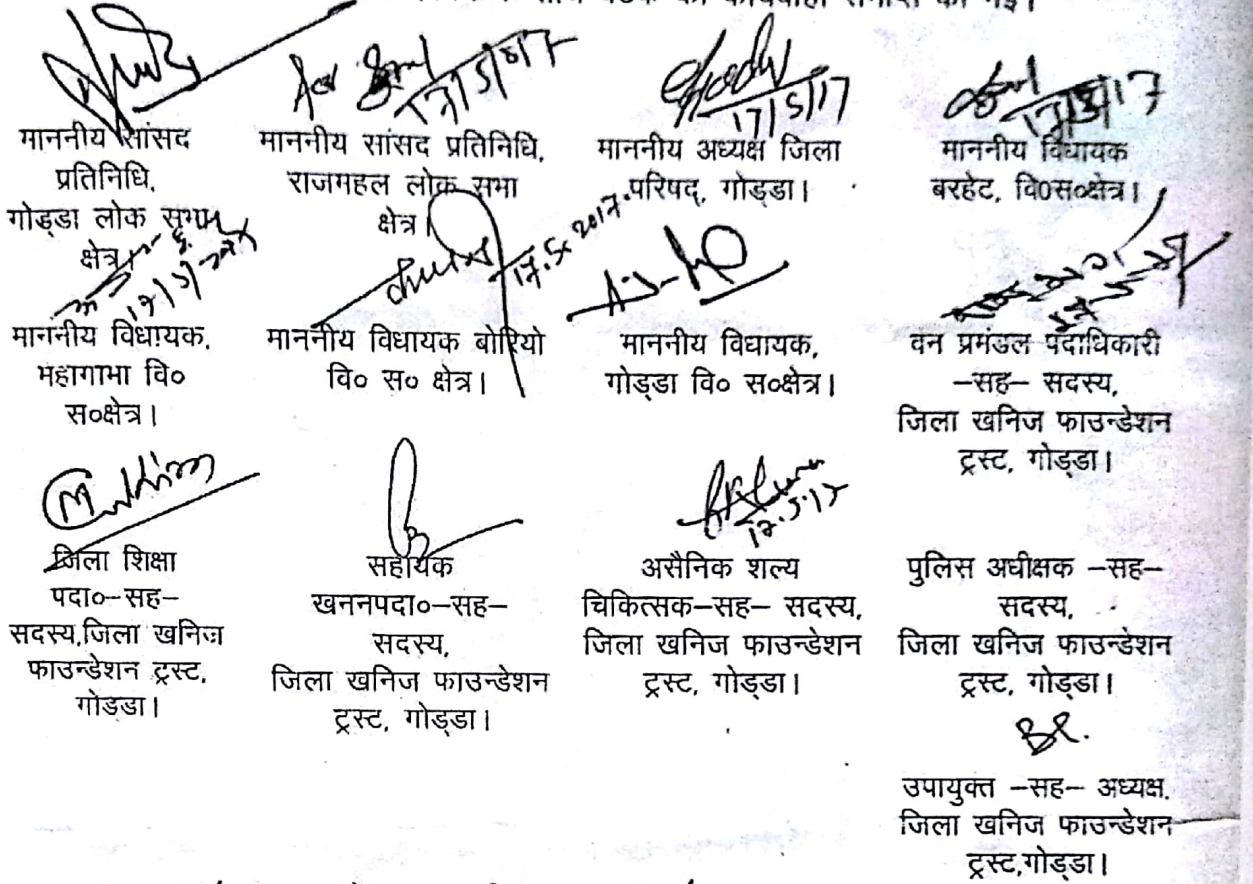 बैठक की कार्यवाही समाप्त की गई।
17/5/017
17/5/17
माननीय सांसद
प्रतिनिधि,
गोड्डा लोक सभा
क्षेत्र।
माननीय सांसद प्रतिनिधि,
राजमहल लोक सभा
क्षेत्र।
माननीय अध्यक्ष जिला
परिषद्, गोड्डा।
माननीय विधायक
बरहेट, वि०स०क्षेत्र।
17.5.2017.
माननीय विधायक,
महागामा वि०
स०क्षेत्र।
माननीय विधायक बोरियो
वि० स० क्षेत्र।
माननीय विधायक,
गोड्डा वि० स०क्षेत्र।
वन प्रमंडल पदाधिकारी
–सह– सदस्य,
जिला खनिज फाउन्डेशन
ट्रस्ट, गोड्डा।
17.5.17
जिला शिक्षा
पदा०–सह–
सदस्य,जिला खनिज
फाउन्डेशन ट्रस्ट,
गोड्डा।
सहायक
खननपदा०–सह–
सदस्य,
जिला खनिज फाउन्डेशन
ट्रस्ट, गोड्डा।
असैनिक शल्य
चिकित्सक–सह– सदस्य,
जिला खनिज फाउन्डेशन
ट्रस्ट, गोड्डा।
पुलिस अधीक्षक –सह–
सदस्य,
जिला खनिज फाउन्डेशन
ट्रस्ट, गोड्डा।
उपायुक्त –सह– अध्यक्ष,
जिला खनिज फाउन्डेशन
ट्रस्ट,गोड्डा।